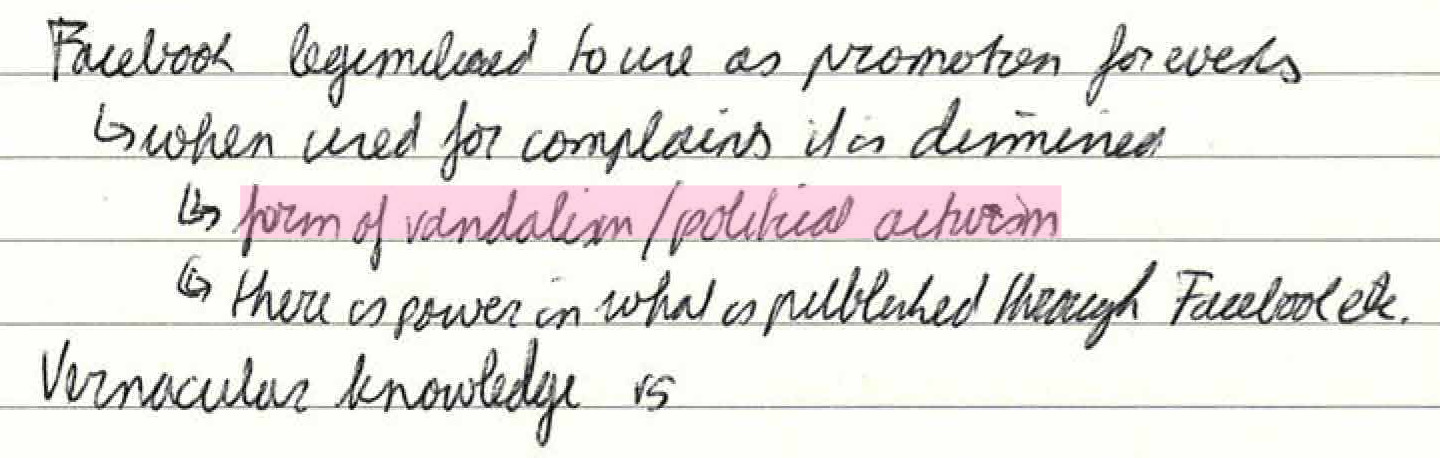 Facebook legimitised to use as promotion for events
↳ when used for complains it is dismissed
↳ form of vandalism / political activism
↳ there is power in what is published through Facebook etc.
Vernacular knowledge vs